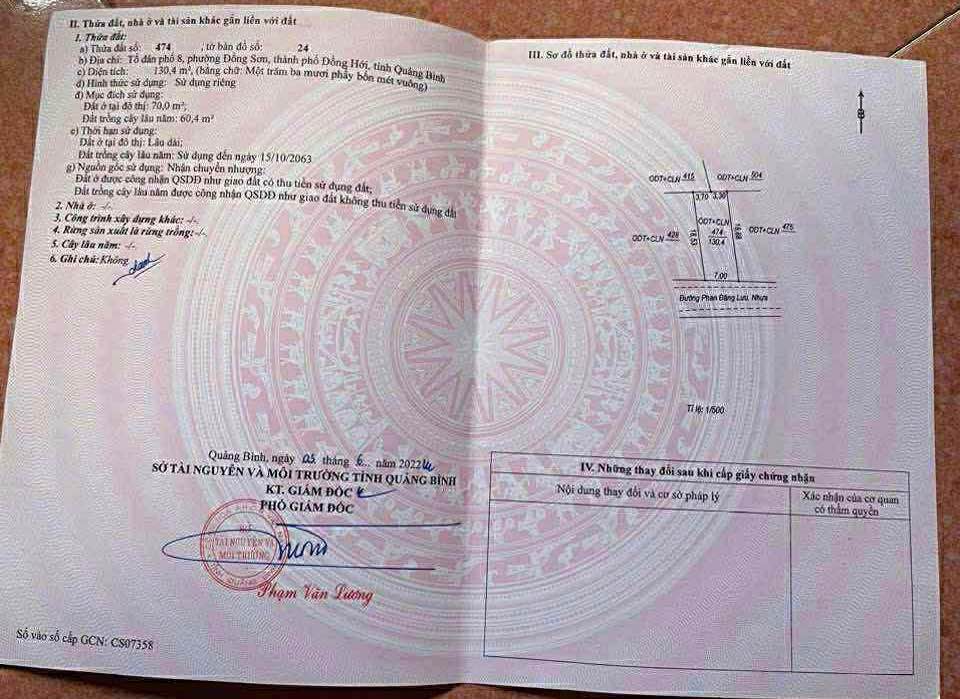 II. Thửa đất, nhà ở và tài sản khác gắn liền với đất
1. Thửa đất:
a) Thửa đất số: 474 , tờ bản đồ số: 24
b) Địa chỉ: Tổ dân phố 8, phường Đồng Sơn, thành phố Đồng Hới, tỉnh Quảng Bình
c) Diện tích: 130,4 m², (bằng chữ: Một trăm ba mươi phẩy bốn mét vuông)
d) Hình thức sử dụng: Sử dụng riêng
đ) Mục đích sử dụng:
Đất ở tại đô thị: 70,0 m²;
Đất trồng cây lâu năm: 60,4 m²
e) Thời hạn sử dụng:
Đất ở tại đô thị: Lâu dài;
Đất trồng cây lâu năm: Sử dụng đến ngày 15/10/2063
g) Nguồn gốc sử dụng: Nhận chuyển nhượng:
Đất ở được công nhận QSDĐ như giao đất có thu tiền sử dụng đất;
Đất trồng cây lâu năm được công nhận QSDĐ như giao đất không thu tiền sử dụng đất
2. Nhà ở: -/-.
3. Công trình xây dựng khác: -/-.
4. Rừng sản xuất là rừng trồng:-/-.
5. Cây lâu năm: -/-.
6. Ghi chú: Không
Quảng Bình, ngày 03 tháng 6... năm 2022
SỞ TÀI NGUYÊN VÀ MÔI TRƯỜNG TỈNH QUẢNG BÌNH
KT. GIÁM ĐỐC
PHÓ GIÁM ĐỐC
SỞ
TÀI NGUYÊN VÀ
MÔI TRƯỜNG
TỈNH QUẢNG BÌNH
Phạm Văn Lương
Số vào sổ cấp GCN: CS07358
III. Sơ đồ thửa đất, nhà ở và tài sản khác gắn liền với đất
B
ODT+CLN 415 ODT+CLN 504
3.70 3.30
ODT+CLN
474
130.4
ODT+CLN 428
18.53
ODT+CLN 475
7.00
Đường Phan Đăng Lưu, Nhựa
Tỉ lệ: 1/500
IV. Những thay đổi sau khi cấp giấy chứng nhận
Nội dung thay đổi và cơ sở pháp lý
Xác nhận của cơ quan
có thẩm quyền